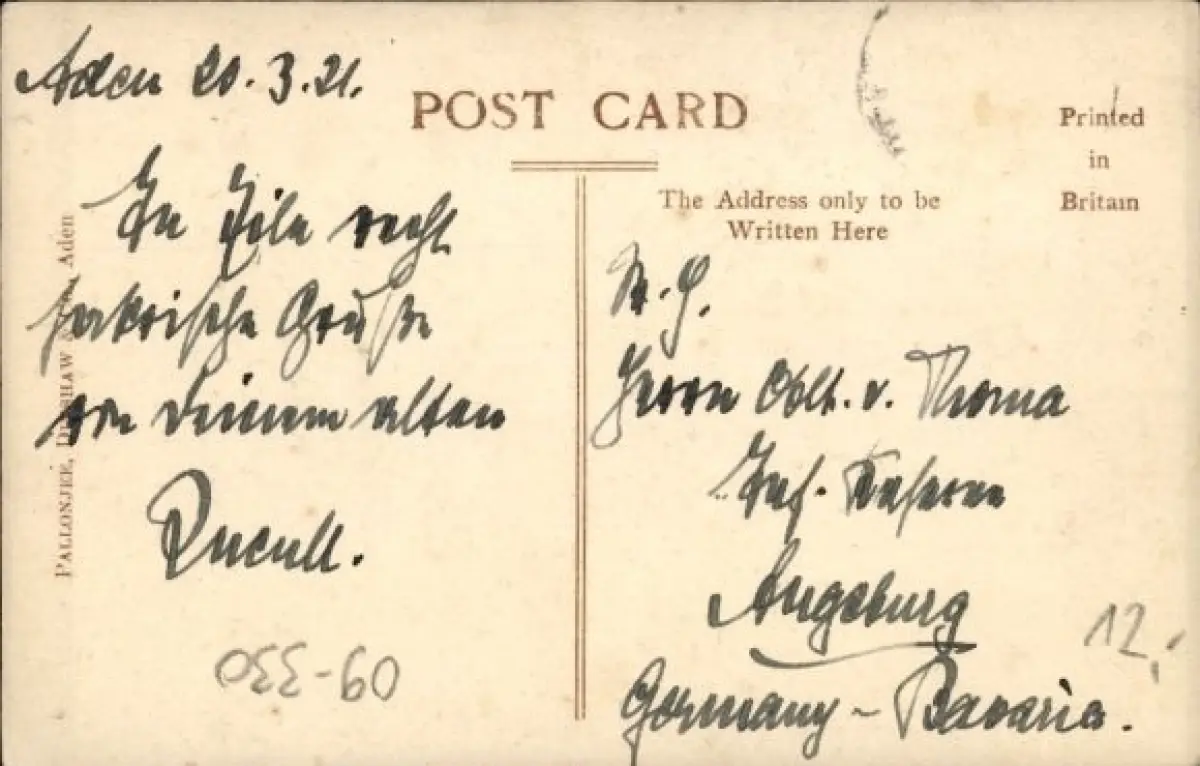 Aden 20.3.21.
In Eile recht
Grüße
von Deinem alten
POST CARD
The Address only to be
Written Here
Printed
in
Britain
Herrn Oblt. v. Thoma
Inf. Kaserne
Augsburg
Germany - Bavaria.
PALLONJEE, Aden
12.
09-330